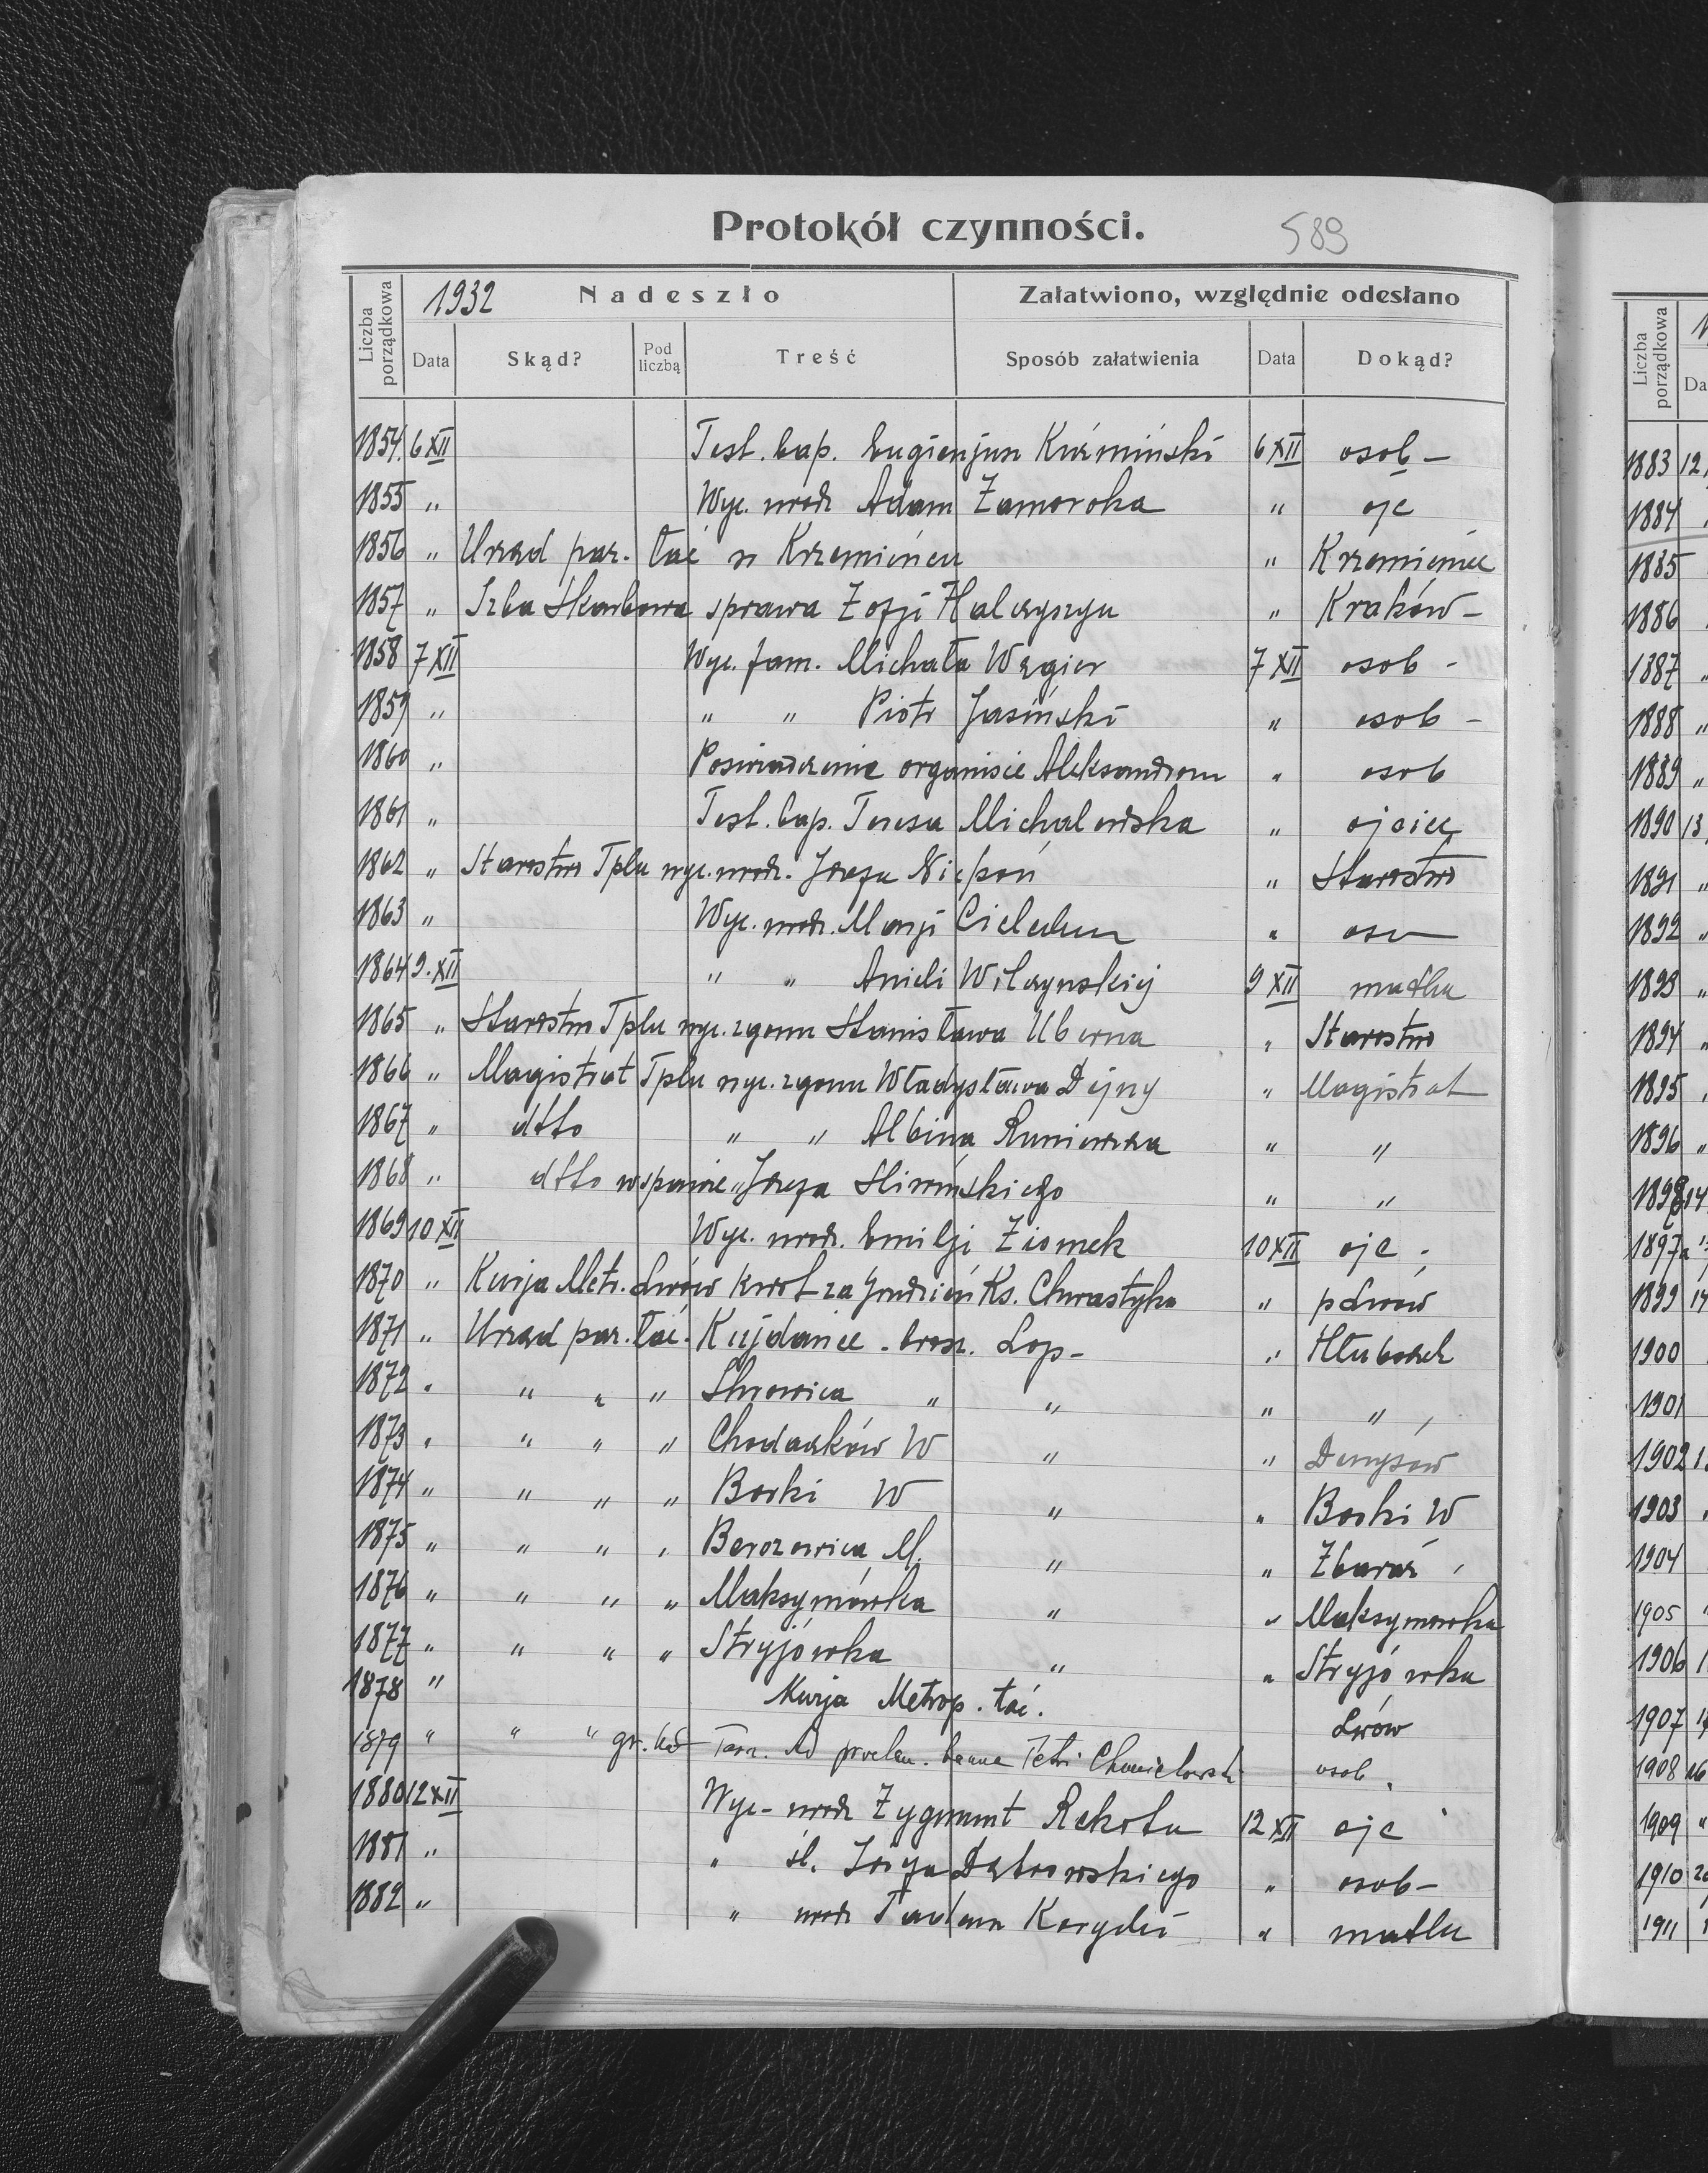 Protokół czynności.
589
Liczba porządkowa
1932 Nadeszło
Załatwiono, względnie odesłano
Data Skąd? Pod liczbą Treść Sposób załatwienia Data Dokąd?
1854. 6 XII Test. bap. Eugienjusz Kuźmiński 6 XII osob -
1855 " Wyc. urodz Adam Zamoroka " ojc
1856 " Urząd par. łać w Krzemieńcu " Krzemieniec
1857 " Izba Skarbowa sprawa Zofji Halczyszyn " Kraków -
1858 7 XII Wyc. fam. Michała Węgier 7 XII osob -
1859 " " " Piotr Jasiński " osob -
1860 " Poświadczenie organiście Aleksandrow " osob
1861 " Test. bap. Teresa Michalewska " ojciec
1862 " Starostwo Tplu wyc. urodz. Józefa Niepoń " Starostwo
1863 " Wyc. urodz. Marji " oso
1864 9. XII " " Anieli Wilczynskiej 9 XII matka
1865 " Starostwo Tplu wyc. zgonu Stanisława Uberna " Starostwo
1866 " Magistrat Tplu wyc. zgonu Władysława Dejny " Magistrat
1867 " dtto " " Albina Runiewicza " "
1868 " dtto w sprawie " Józefa Śliwińskiego " "
1869 10 XII Wyc. urodz. Emilji Ziomek 10 XII ojc .
1870 " Kurja Metr. Lwów kwot za grudzień Ks. Chwastyka " pLwów
1871 " Urząd par. łać. Kujdańce - brosz. Lop - " Hłuboczek
1872 " " " " Ihrowica " " " "
1873 " " " " Chodaczków W " " Denysów
1874 " " " " Borki W " " Borki W
1875 " " " " Berezowica M. " " Zbaraż
1876 " " " " Maksymówka " " Maksymówka
1877 " " " " Stryjówka " " Stryjówka
1878 " Kurja Metrop. łać. Lwów
1879 " " " gr. kat Tarn. Ad proclam. banna Petri Chmielowski osob .
1880 12 XII Wyc - urodz Zygmunt Rekota 12 XII ojc
1881 " " śl. Józefa Dąbrowskiego " osob -
1882 " " urodz Tadeusz " matka
Liczba porządkowa
1883 12
1884
1885
1886
1887 "
1888 "
1889 "
1890 13
1891 "
1892 "
1893 "
1894 "
1895 "
1896 "
1898 14
1897a
1899 14
1900
1901
1902
1903
1904
1905
1906
1907
1908
1909 "
1910
1911